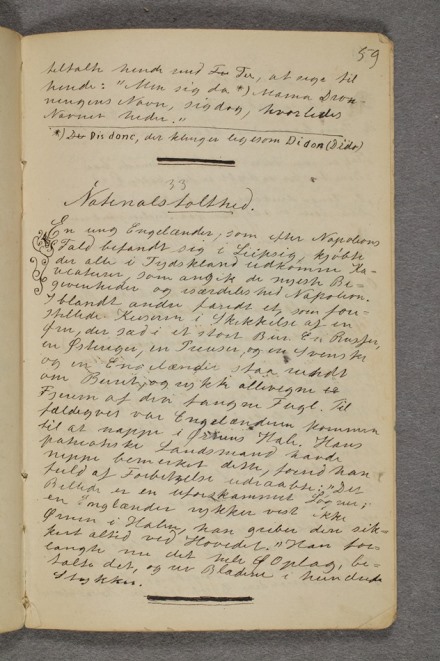 59
tiltalte hende med For Fru, at sige til
hende: "Men sig da *) Mama Dron-
ningens Navn, sig dog, hvorledes
Navnet heder."
*) Dis donc, det klinger ligesom Didon (Dido)
33
Nationalstolthed.
En ung Engelænder, som efter Napoleons
Fald befandt sig i Leipsig, kjøbte
der alle i Tydskland udkomne Ka-
ricaturer, som angik de nyeste Be-
givenheder og særdeleshed Napoleon.
Iblandt andre fandt et, som fore-
stillede Keiseren i Skikkelse af en
Ørn, der sad i et stort Bur. En Russer,
en Østeriger, en Preuser, og en Svensker
og en Engelænder staa rundt
om Buret, og rykke allevegne
Fjerene af den fangne Fugl. Til-
fældigvis var Engelænderen kommen
til at nappe i Ørnens Hale. Hans
patriotiske Landsmand havde
neppe bemærket dette, førend han
fuld af Forbitrelse udraabte: "Det
Billede er en uforskammet Løgner;
en Englænder rykker vist ikke
Ørnen i Halen, han griber den sik-
kert altid ved Hovedet." Han for-
langte nu det hele Oplag, be-
talte det, og rev Bladene i hundrede
Stykker.